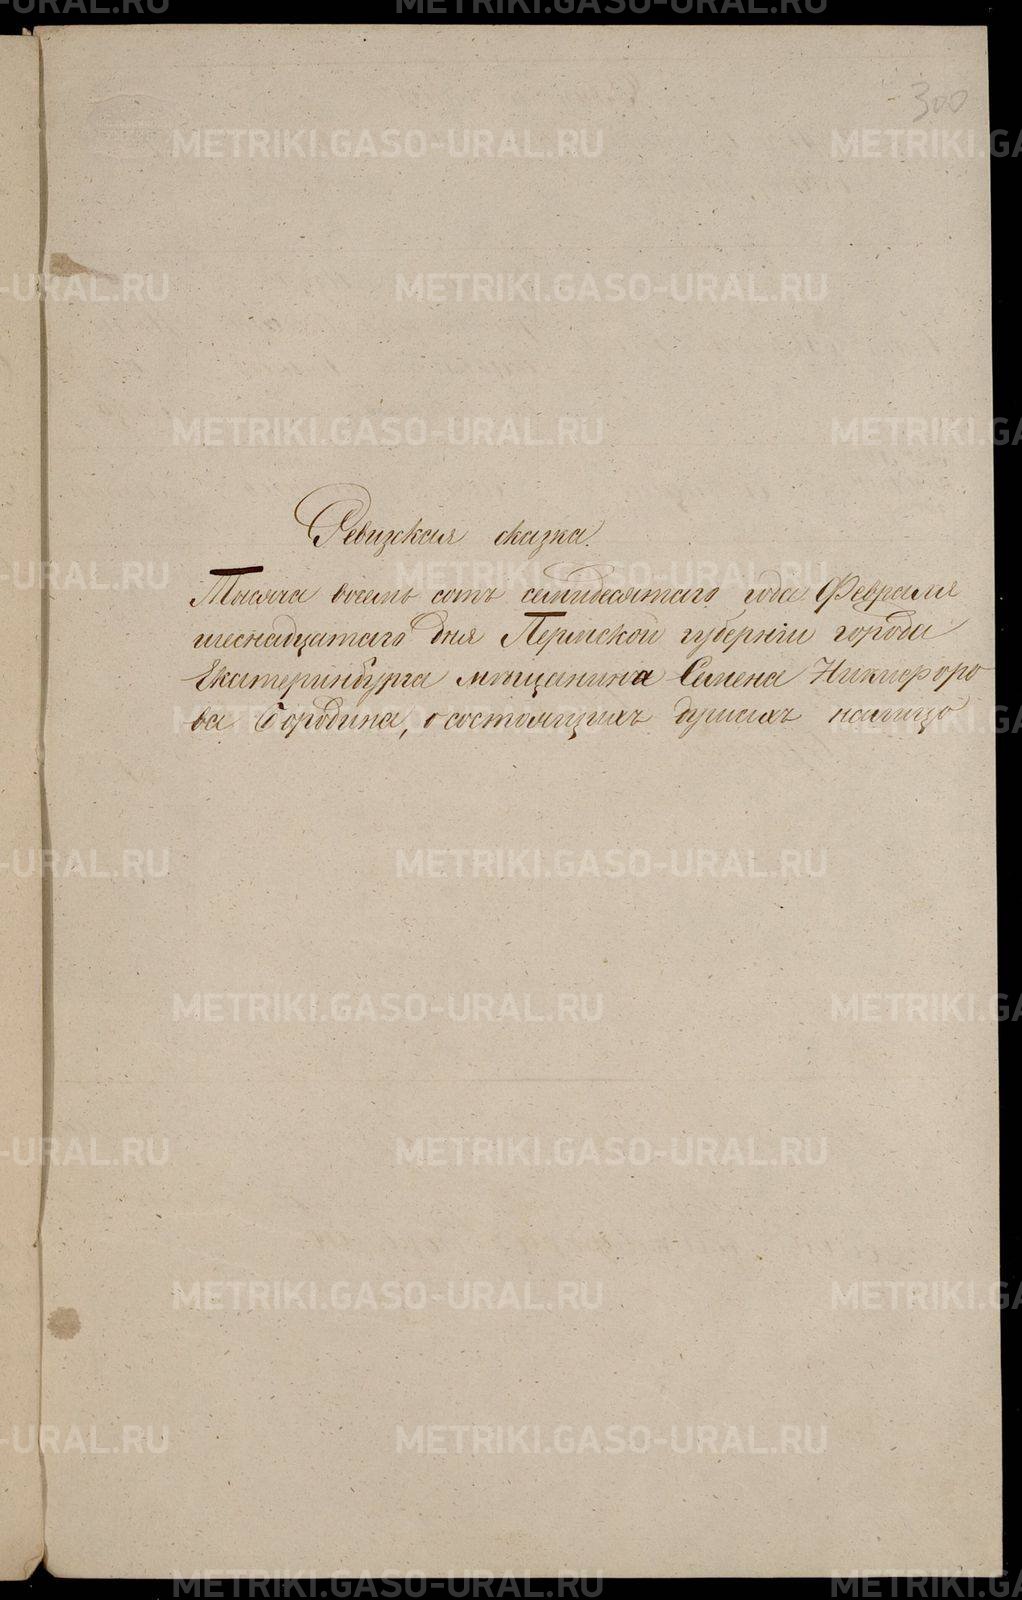 300
Ревизская сказка.
Тысяча восемь сотъ семидесятаго года Февраля
шеснадцатаго дня Пермской губерніи города
Екатеринбурга мѣщанина Семена Никифоро
ва Бородина, о состоящихъ душахъ налицо
METRIKI.GASO-URAL.RU